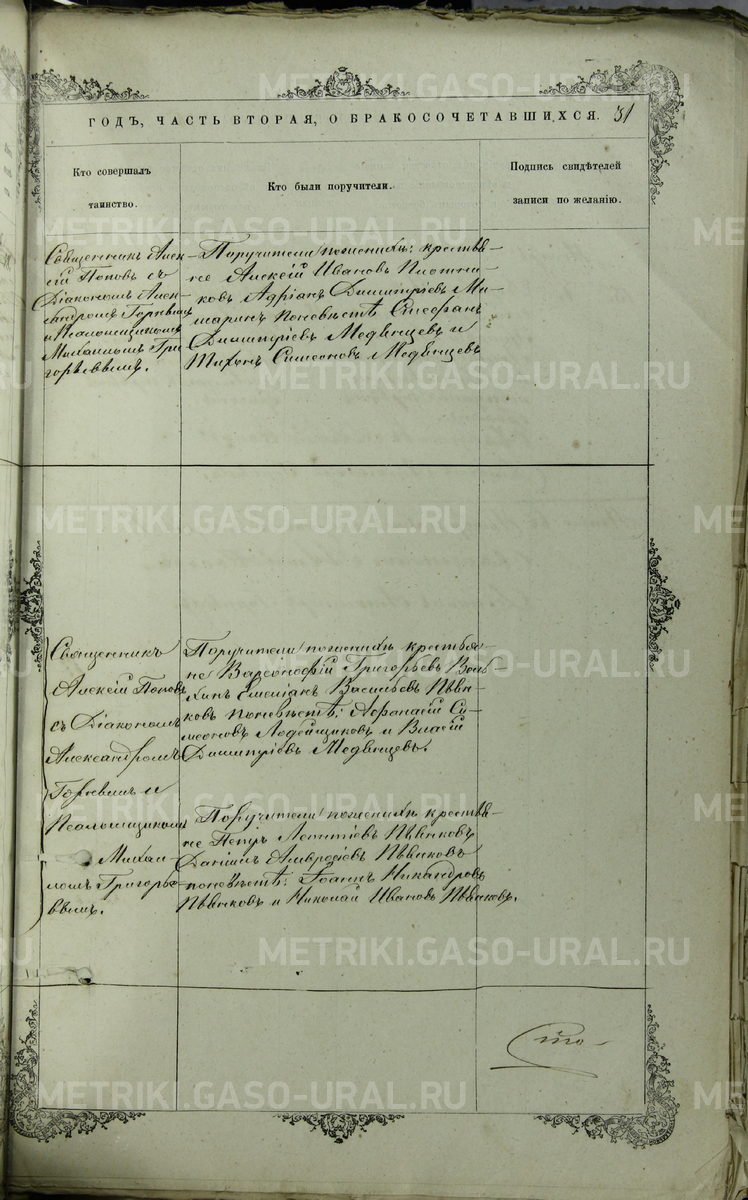 ГОДЪ, ЧАСТЬ ВТОРАЯ, О БРАКОСОЧЕТАВШИХСЯ. 31
Кто совершалъ
таинство.
Кто были поручители.
Подпись свидѣтелей
записи по желанію.
Священникъ Алек-
сій Поповъ съ
Діакономъ Алек-
сандромъ
и Псаломщикомъ
Михаиломъ Гри-
горьевымъ.
Поручители по женихѣ: крестья-
не Алексій Ивановъ Плотни-
ковъ Адріанъ Димитріевъ
по невѣстѣ Стефанъ
Димитріевъ Медвѣщевъ и
Тихонъ Симеоновъ Медвѣщевъ
Священникъ
Алексій Поповъ
съ Діакономъ
Александромъ
и
Псаломщикомъ
Михаи-
ломъ Григорье-
вымъ.
Поручители по женихѣ крестья-
не Варсонофій Григорьевъ
Емеліанъ Васильевъ Пьян-
ковъ по невѣстѣ: Афанасій Си-
меоновъ Лодейщиковъ и Власій
Димитріевъ Медвѣщевъ.
Поручители по женихѣ крестья-
не Петръ Леонтіевъ Пьянковъ
Даніилъ Амвросіевъ Пьянковъ
по невѣстѣ: Іоаннъ Никандровъ
Пьянковъ и Николай Ивановъ Пьянковъ.
METRIKI.GASO-URAL.RU